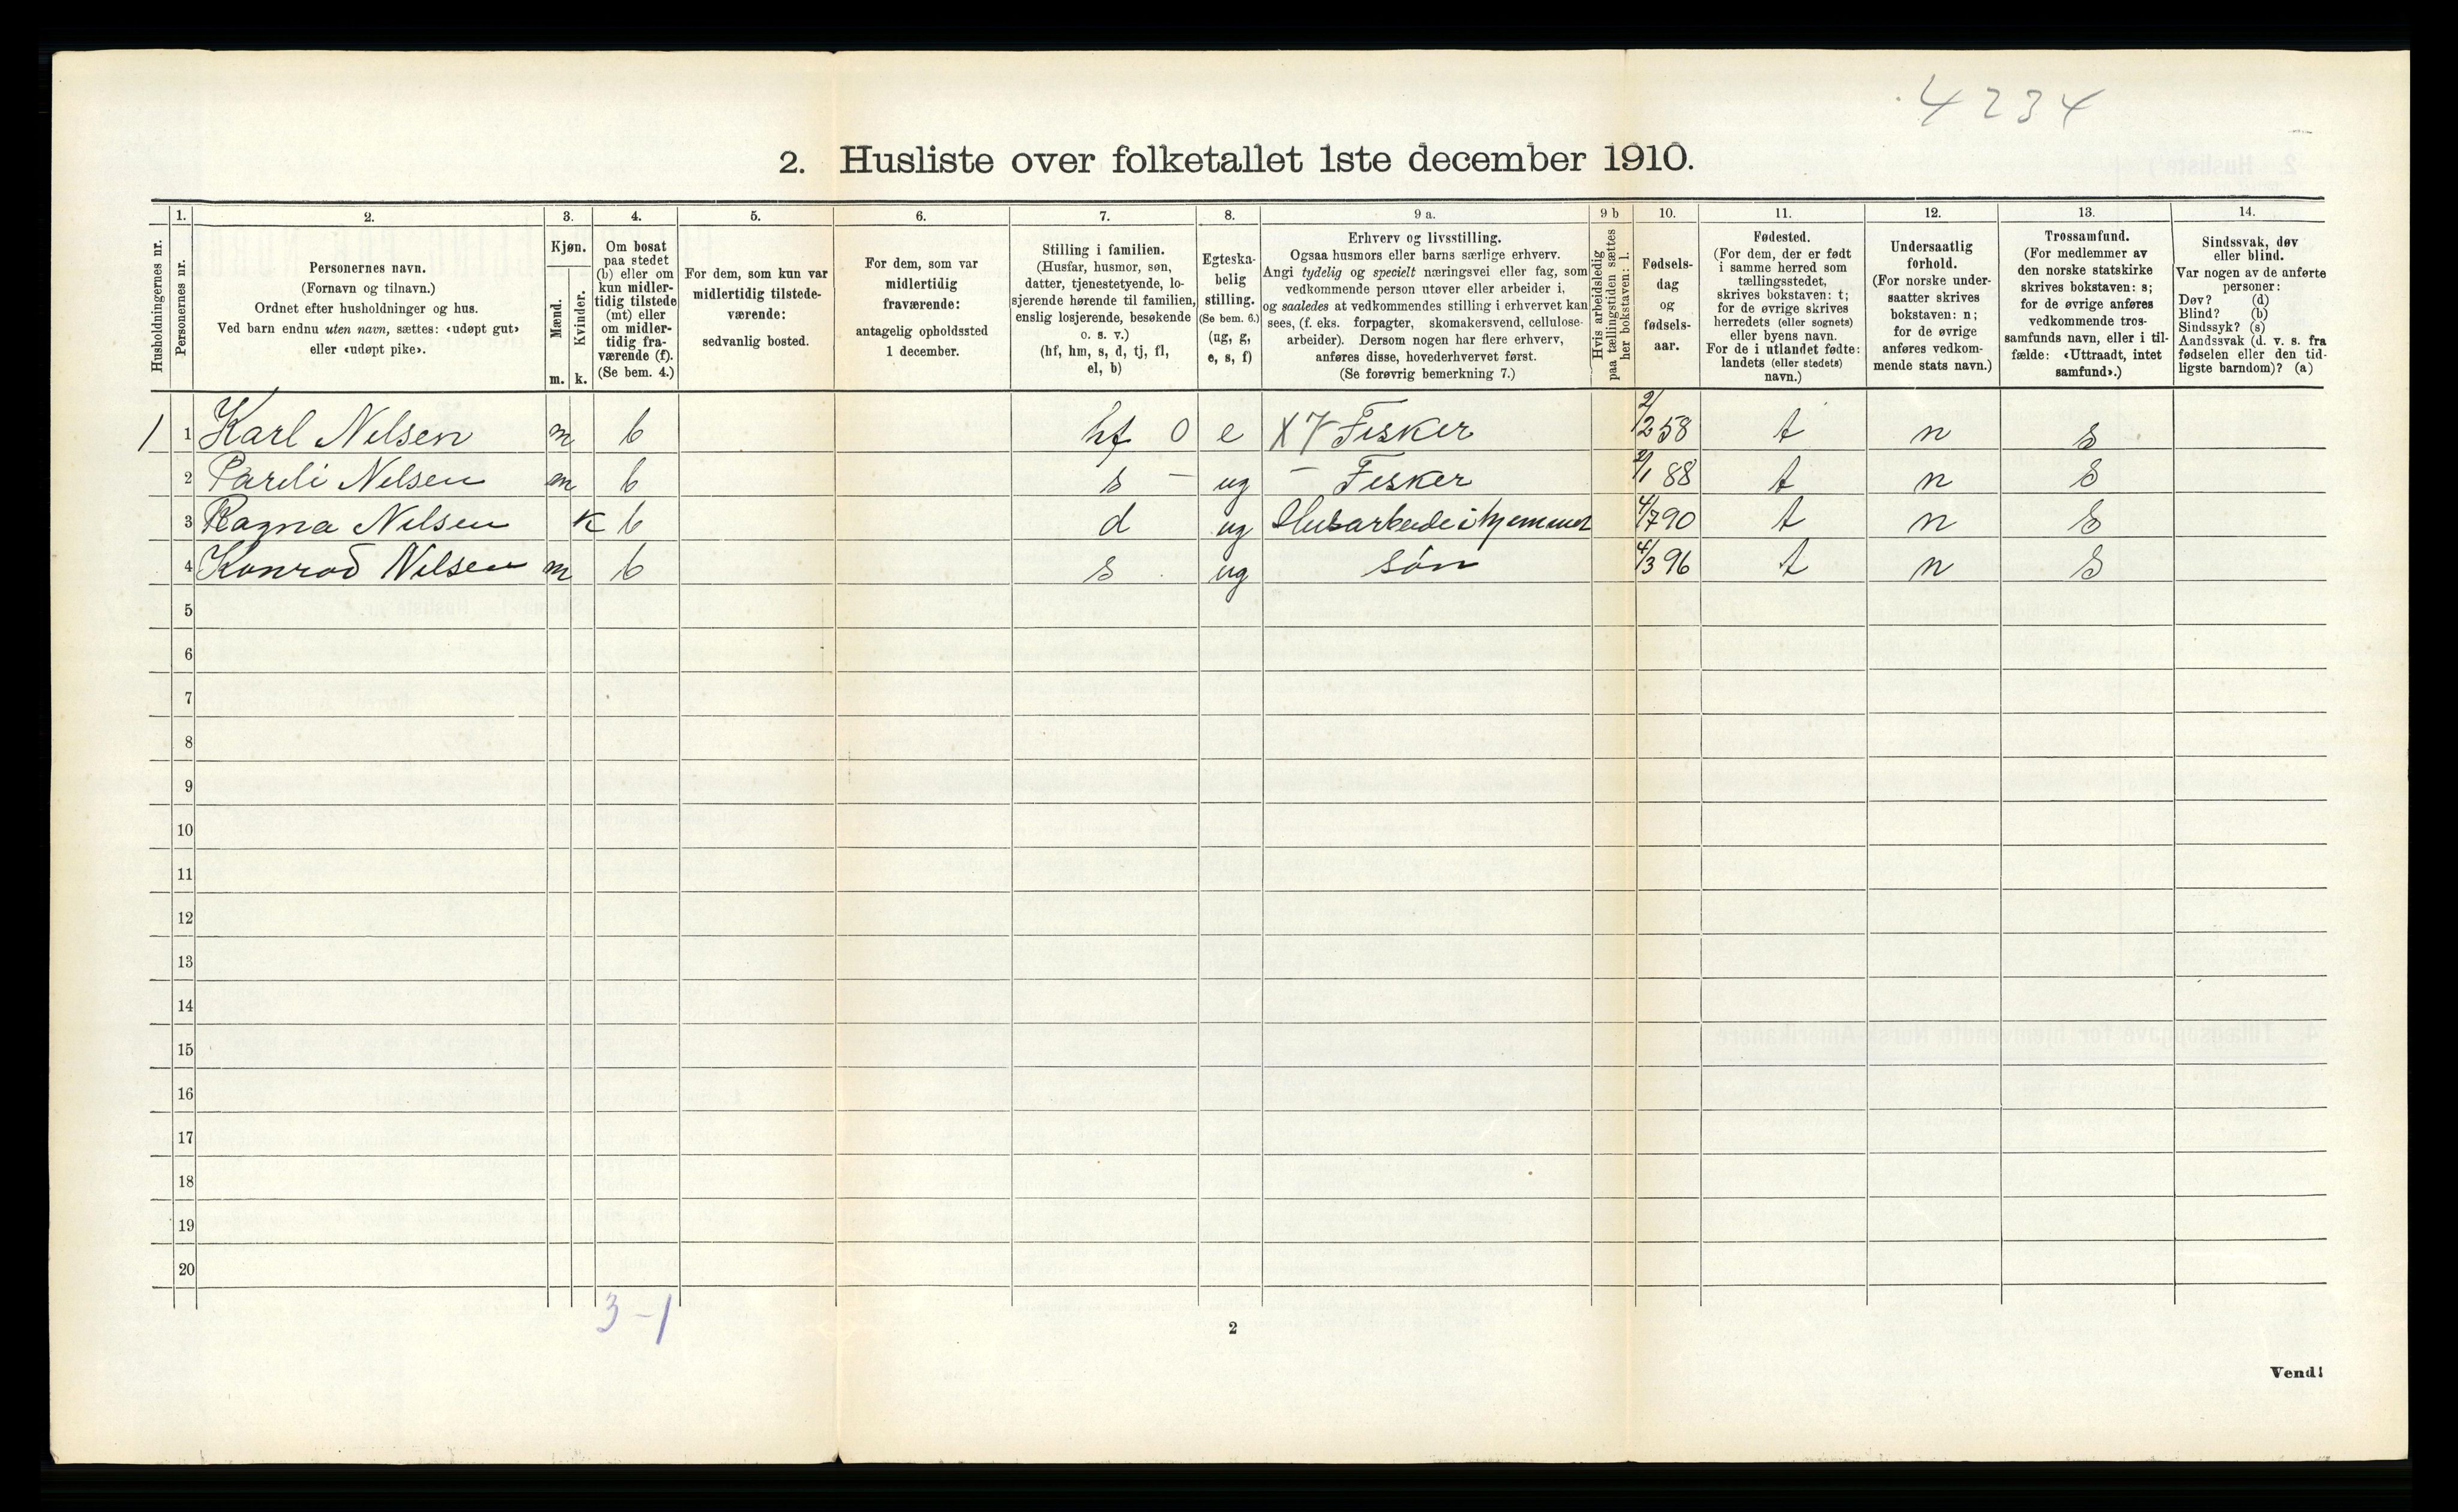 4234
2. Husliste over folketallet 1ste december 1910.
1. 2. 3. 4. 5. 6. 7. 8. 9 a. 9 b 10. 11. 12. 13. 14.
Husholdningernes nr.
Personernes nr.
Personernes navn.
(Fornavn og tilnavn.)
Ordnet efter husholdninger og hus.
Ved barn endnu uten navn, sættes: «udøpt gut»
eller «udøpt pike».
Kjøn.
Mænd.
Kvinder.
m. k.
Om bosat
paa stedet
(b) eller om
kun midler-
tidig tilstede
(mt) eller
om midler-
tidig fra-
værende (f).
(Se bem. 4.)
For dem, som kun var
midlertidig tilstede-
værende:
sedvanlig bosted.
For dem, som var
midlertidig
fraværende:
antagelig opholdssted
1 december.
Stilling i familien.
(Husfar, husmor, søn,
datter, tjenestetyende, lo-
sjerende hørende til familien,
enslig losjerende, besøkende
o. s. v.)
(hf, hm, s, d, tj, fl,
el, b)
Egteska-
belig
stilling.
(Se bem. 6.)
(ug, g,
e, s, f)
Erhverv og livsstilling.
Ogsaa husmors eller barns særlige erhverv.
Angi tydelig og specielt næringsvei eller fag, som
vedkommende person utøver eller arbeider i,
og saaledes at vedkommendes stilling i erhvervet kan
sees, (f. eks. forpagter, skomakersvend, cellulose-
arbeider). Dersom nogen har flere erhverv,
anføres disse, hovederhvervet først.
(Se forøvrig bemerkning 7.)
Hvis arbeidsledig
paa tællingstiden sættes
her bokstaven: l.
Fødsels-
dag
og
fødsels-
aar.
Fødested.
(For dem, der er født
i samme herred som
tællingsstedet,
skrives bokstaven: t;
for de øvrige skrives
herredets (eller sognets)
eller byens navn.
For de i utlandet fødte:
landets (eller stedets)
navn.)
Undersaatlig
forhold.
(For norske under-
saatter skrives
bokstaven: n;
for de øvrige
anføres vedkom-
mende stats navn.)
Trossamfund.
(For medlemmer av
den norske statskirke
skrives bokstaven: s;
for de øvrige anføres
vedkommende tros-
samfunds navn, eller i til-
fælde: «Uttraadt, intet
samfund».)
Sindssvak, døv
eller blind.
Var nogen av de anførte
personer:
Døv? (d)
Blind? (b)
Sindssyk? (s)
Aandssvak (d. v. s. fra
fødselen eller den tid-
ligste barndom)? (a)
1 1 Karl Nilsen m b hf 0 e X 7 Fisker 2/2 58 t n s
2 Pareli Nilsen m b s – ug – Fisker 2/1 88 t n s
3 Ragna Nilsen k b d ug Husarbeide i hjemmet 4/7 90 t n s
4 Konrad Nilsen m b s ug søn 4/3 96 t n s
5
6
7
8
9
10
11
12
13
14
15
16
17
18
19
20
3-1
2
Vend!